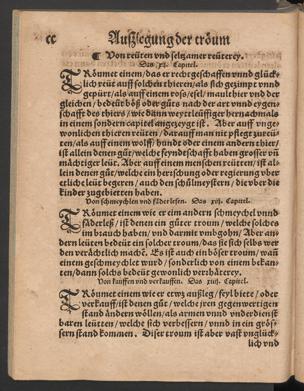 cc Auſzlegung der tröum
¶ Von reüten vnd ſeltzamer reüterey.
Das xj. Capitel.
TRöumet einem / das er rechtgeſchaffen vnnd glück-
lich reüt auff ſolchen thieren / als ſich gezimpt vnnd
gepürt / als auff einem roſs / eſel / maulthier vnd der
gleichen / bedeüt böß oder güts nach der art vnnd eygen-
ſchafft des thiers / wie dann weytleüffiger hernachmals
in einem ſondern capitel angezeygt iſt. Aber auff vnge-
wonlichen thieren reüten / darauff man nit pflegt zureü-
ten / als auff einem wolff / hundt oder einem andern thier /
iſt allein denen güt / welche feyndſchafft haben groſſer vn̄
mächtiger leüt. Aber auff einem menſchen reüten / iſt al-
lein denen güt / welche ein herſchung oder regierung vber
etliche leüt begeren / auch den ſchülmeyſtern / die vber die
kinder zugebietten haben.
Von ſchmeychlen vnd fäderleſen. Das xij. Capitel.
TRöumet einem wie er eim andern ſchmeychel vnnd
fäderleß / iſt denen ein güter troum / welche ſolchs
im brauch haben / vnd darmit vmbgohn / Aber an-
dern leüten bedeüt ein ſolcher troum / das ſie ſich ſelbs wer
den verächtlich machē. Es iſt auch ein böſer troum / wañ
einem geſchmeychlet würt / ſonderlich von einem bekan-
ten / dann ſolchs bedeüt gewonlich verrhäterey.
Von kauffen vnd verkauffen. Das xiij. Capitel.
TRöumet einem wie er etwz auſzleg / feyl biete / oder
verkauff / iſt denen güt / welche jren gegenwertigen
ſtand ändern wöllen / als armen vnnd vnderdienſt
baren leütten / welche ſich verbeſſern / vnnd in ein gröſ-
ſern ſtand kommen. Diſer troum iſt aber vaſt vnglück-
lich vnd